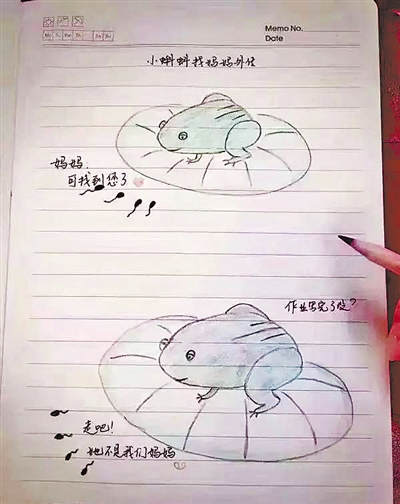 Memo No.
Date
Mo Tu We Th Fr Sa Su
小蝌蚪找妈妈外传
妈妈,
可找到您了
作业写完了没?
走吧!
她不是我们妈妈